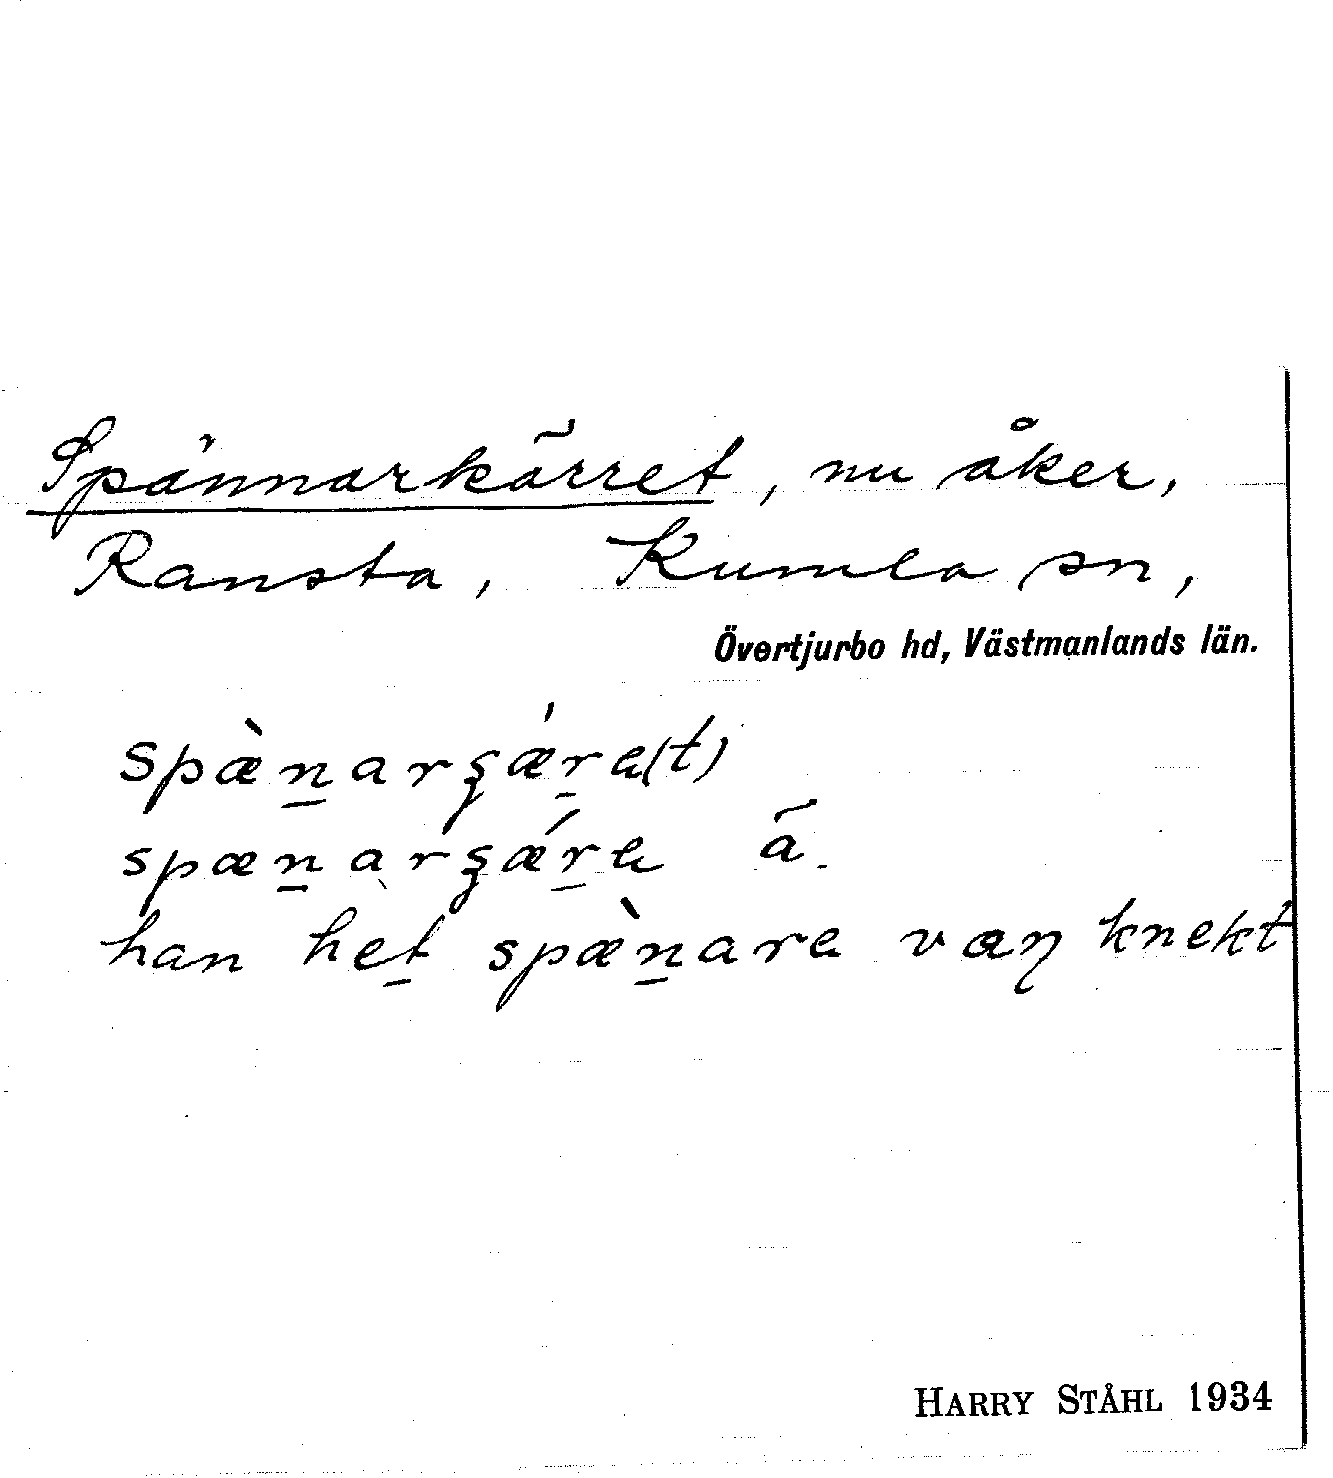 Spännarkärret, nu åker,
Ransta, Kumla sn,
Övertjurbo hd, Västmanlands län.
spæ̀n̲arʂǽr̲a(t)
spæn̲arʂǽr̲a ã.
han het̲ spæ̀n̲ara væŋ knekt
HARRY STÅHL 1934